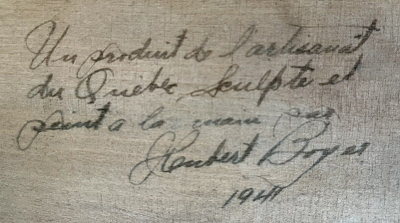 Un produit de l'artisanat
du Québec, Sculpté et
peint a la main par
Humbert Boyer
1941